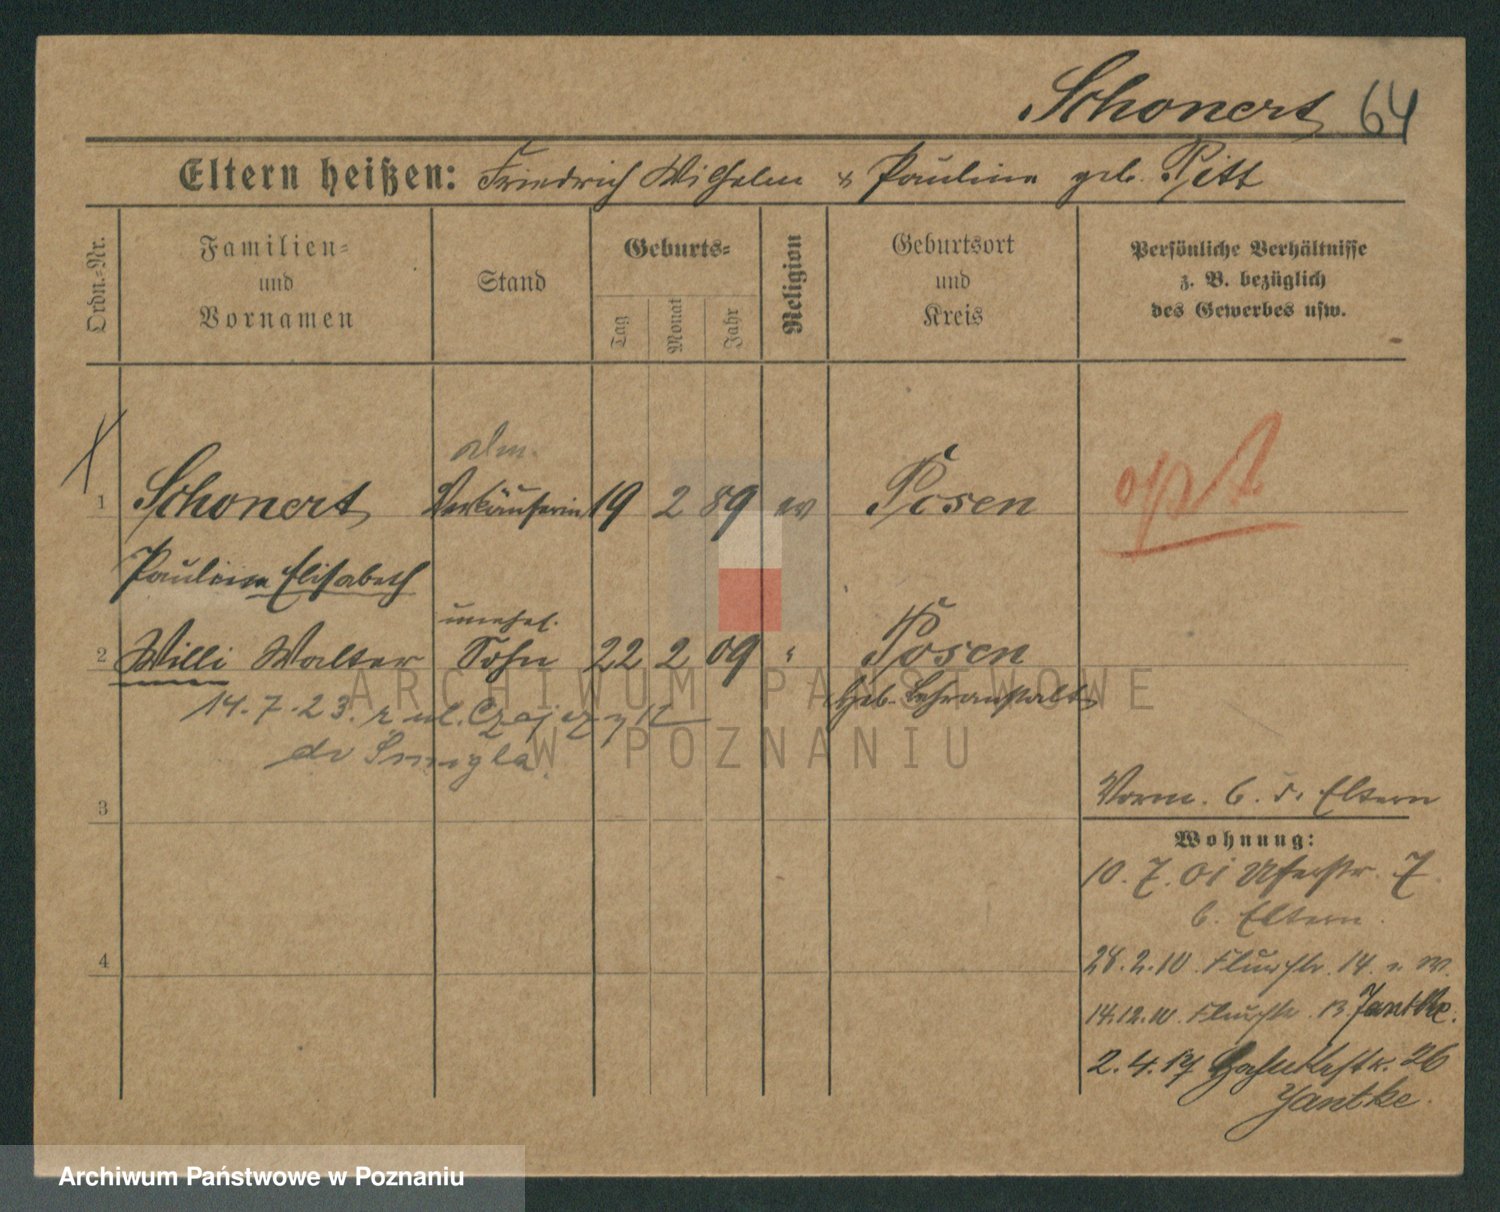 Schonert 64
Eltern heißen: Friedrich Wilhelm & Pauline geb. Pitt
Ordn.-Nr.
Familien-
und
Vornamen
Stand
Geburts-
Tag
Monat
Jahr
Religion
Geburtsort
und
Kreis
Persönliche Verhältnisse
z. B. bezüglich
des Gewerbes usw.
1 Schonert Verkäuferin 19 2 89 ev Posen opt
Pauline Elisabeth
unehel.
2 Willi Walter Sohn 22 2 09 " Posen
Heb. Lehranstalt
14.7.23. z ul.
do Śmigla.
3
Vorm. b. d. Eltern
Wohnung:
10.7.01 Uferstr. 7.
b. Eltern.
4
28.2.10. Flurstr. 14.
14.12.10. Flurstr. 13 Jantke.
2.4.17 26
Jantke.
ARCHIWUM PAŃSTWOWE
W POZNANIU
Archiwum Państwowe w Poznaniu